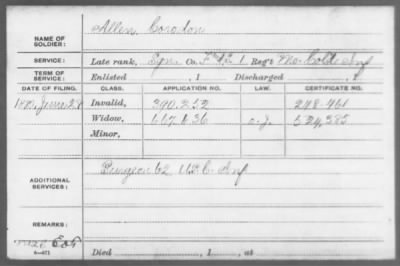 NAME OF SOLDIER: Allen Corodon
SERVICE: Late rank, Co. F 42, 1 Reg't Mo. Cold. Inf
TERM OF SERVICE: Enlisted , 1 Discharged , 1
DATE OF FILING. CLASS. APPLICATION NO. LAW. CERTIFICATE NO.
1880, June 28 Invalid, 390.252 248.461
Widow, 667.636 o.j. 524,385
Minor,
ADDITIONAL SERVICES: Surgeon 62 U.S.C. Inf
REMARKS:
Died , 1 , at